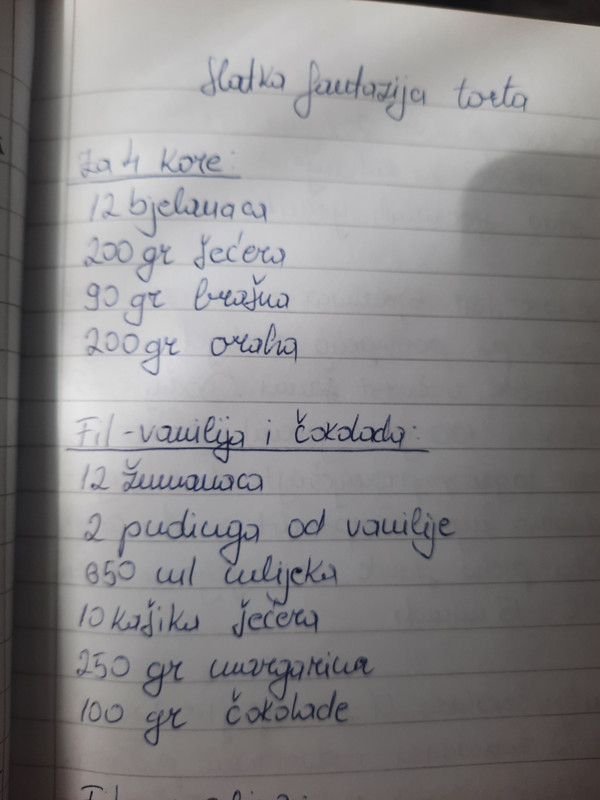 Slatka fantazija torta
Za 4 kore:
12 bjelanaca
200 gr šećera
90 gr brašna
200 gr oraha
Fil-vanilija i čokolada:
12 žumanaca
2 pudinga od vanilije
650 ml mlijeka
10 kašika šećera
250 gr margarina
100 gr čokolade